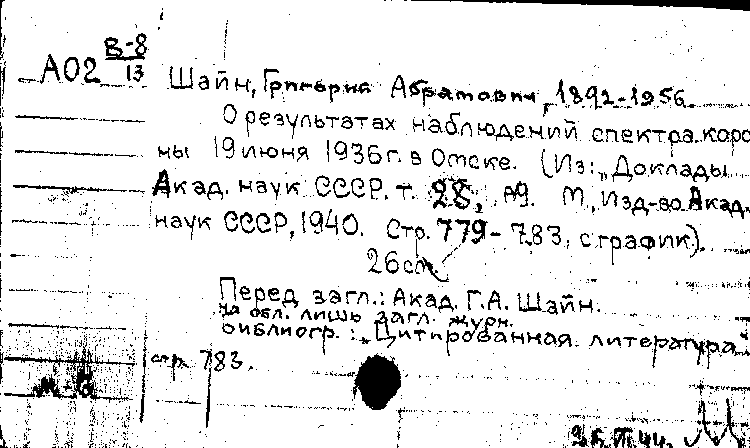 В-8
А02 13
Шайн, Григорий Абрамович, 1892-1956.
О результатах наблюдений спектра коро
ны 19 июня 1936 г. в Омске. (Из: „Доклады
Акад. наук СССР. т. 28, №9. М., Изд-во Акад.
наук СССР, 1940. Стр. 779-783, с график).
26 см.
Перед загл.: Акад. Г.А. Шайн.
На обл. лишь загл. журн.
Библиогр.: „Цитированная литература"
стр. 783.
М-Б